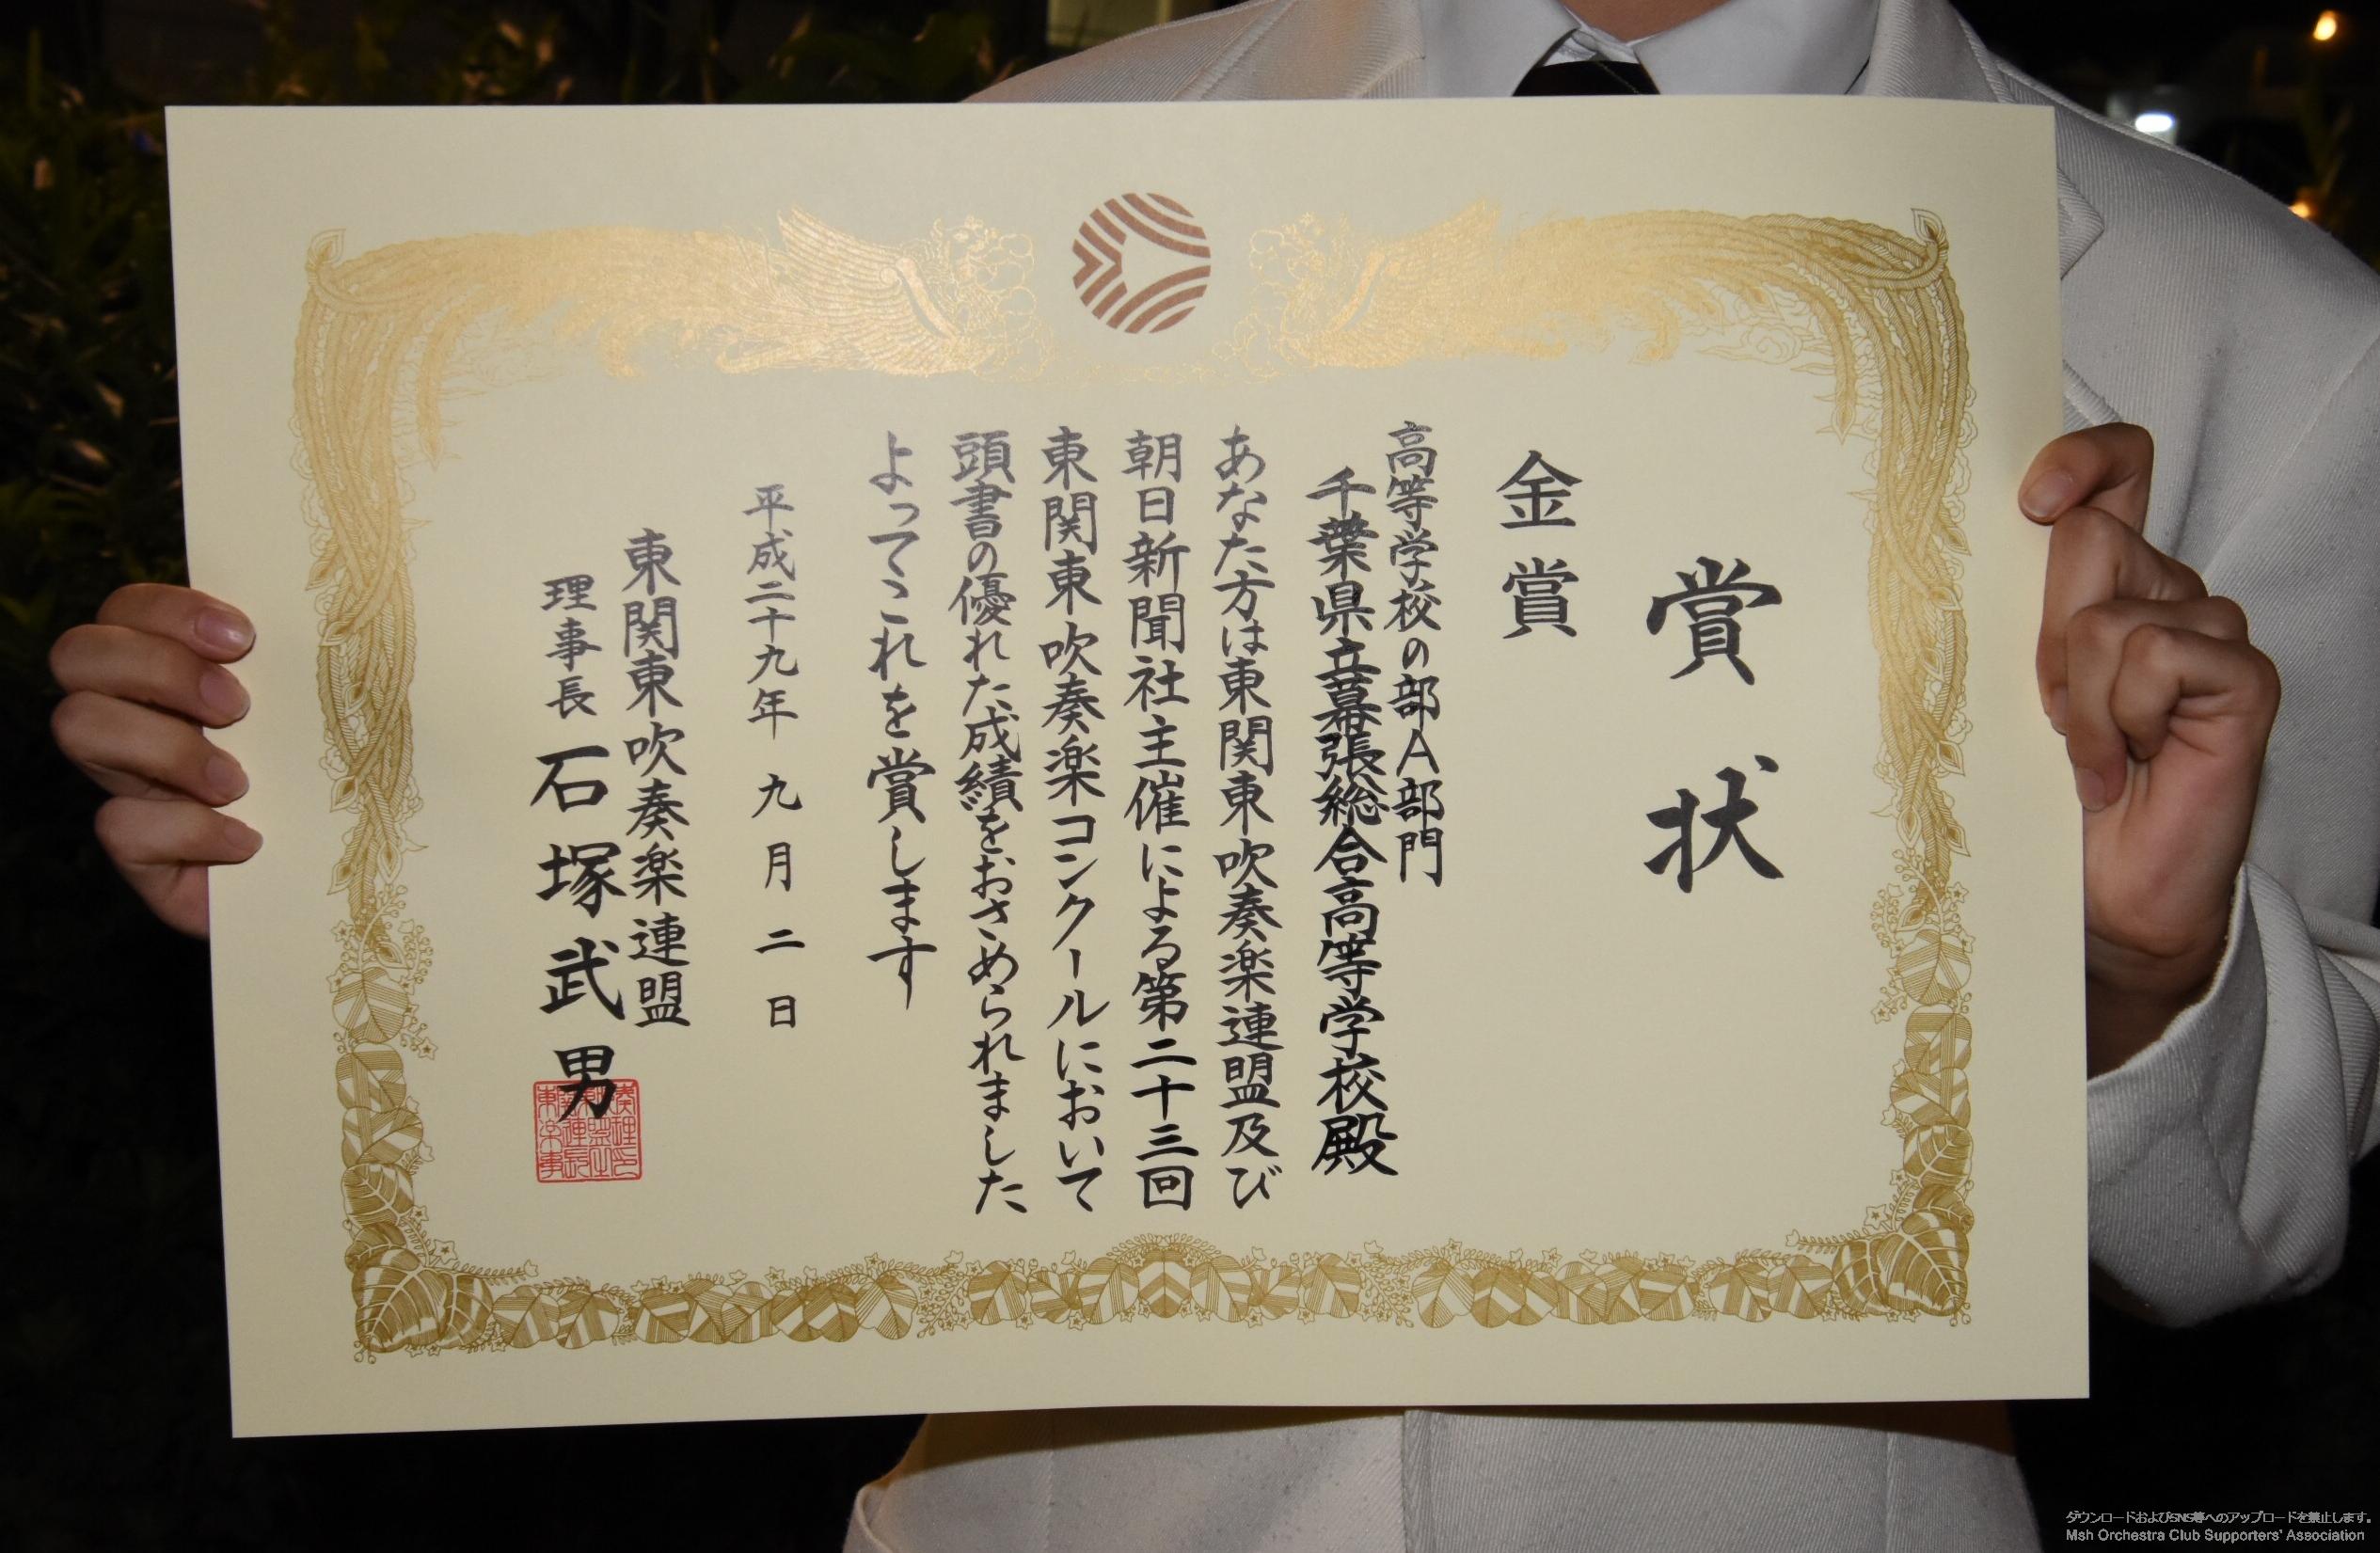 賞状
金賞
高等学校の部A部門
千葉県立幕張総合高等学校殿
あなた方は東関東吹奏楽連盟及び
朝日新聞社主催による第二十三回
東関東吹奏楽コンクールにおいて
頭書の優れた成績をおさめられました
よってこれを賞します
平成二十九年 九月二日
東関東吹奏楽連盟
理事長 石塚武男
ダウンロードおよびSNS等へのアップロードを禁止します。
Msh Orchestra Club Supporters' Association